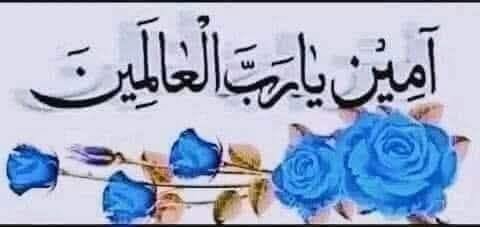 آمِيْن يَا رَبَّ الْعَالَمِينَ